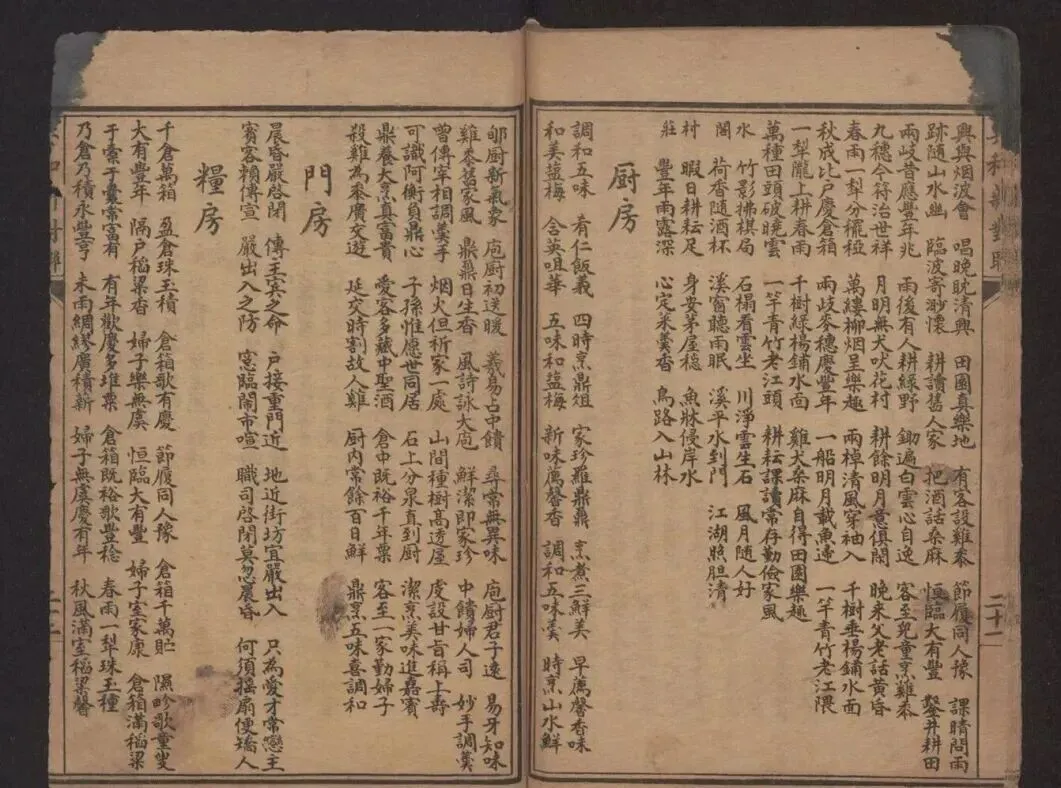 興與烟波會 唱晚晚清興 田園真樂地 有客設雞黍 節履同人豫 課晴問雨
跡隨山水幽 臨波寄渺懷 耕讀舊人家 把酒話桑麻 恒臨大有豐 鑿井耕田
兩岐音應豐年兆 雨後有人耕綠野 鋤遍白雲心自逸 客至兒童烹雞黍
九穗今符治世祥 月明無犬吠花村 耕餘明月意俱閒 晚來父老話黃昏
春雨一犁分穜稑 萬縷柳烟呈樂趣 兩棹清風穿袖入 千樹垂楊鋪水面
秋成比户慶倉箱 兩岐麥穗慶豐年 一船明月載魚還 一竿青竹老江隈
一犁隴上耕春雨 千樹綠楊鋪水面 雞犬桑麻自得田園樂趣
萬種田頭破曉雲 一竿青竹老江頭 耕耘課讀常存勤儉家風
水 竹影拂棋局 石榻看雲坐 川淨雲生石 風月隨人好
閣 荷香隨酒杯 溪窗聽雨眠 溪平水到門 江湖照胆清
村 暇日耕耘足 身安茅屋穩 魚牀侵岸水
莊 豐年雨露深 心定菜羹香 鳥路入山林
厨房
調和五味 有仁飯義 四時烹鼎俎 家珍羅鼎鼎 烹煮三鮮美 早薦馨香味
和美鹽梅 含英咀華 五味和鹽梅 新味薦馨香 調和五味羹 時烹山水鮮
郇厨新氣象 庖厨初送暖 羲易占中饋 尋常無異味 庖厨君子遠 易牙知味
雞黍舊家風 鼎鼐日生香 風詩詠大庖 鮮潔即家珍 中饋婦人司 妙手調羹
曾傳宰相調羹手 烟火但祈家一處 山間種樹高透屋 虔設甘旨稱上壽
可識阿衡負鼎心 子孫惟愿世同居 石上分泉直到厨 潔烹美味進嘉賓
鼎養大烹真富貴 愛客多藏中聖酒 倉中既裕千年粟 客至一家勤婦子
殺雞為黍廣交遊 延交時割故人雞 厨内常餘百日鮮 鼎烹五味喜調和
門房
晨昏嚴啓閉 傳主賓之命 户接重門近 地近街坊宜嚴出入 只為愛才常戀主
賓客賴傳宣 嚴出入之防 窓臨鬧市喧 職司啓閉莫忽晨昏 何須搖扇便矯人
糧房
千倉萬箱 盈倉珠玉積 倉箱歌有慶 節履同人豫 倉箱千萬貯 隰畛歌童叟
大有豐年 隔户稻粱香 婦子樂無虞 恒臨大有豐 婦子室家康 倉箱滿稻粱
于橐于囊常富有 有年歡慶多堆粟 倉箱既裕歌豐稔 春雨一犁珠玉種
乃倉乃積永豐亨 未雨綢繆廣積新 婦子無虞慶有年 秋風滿室稻粱馨